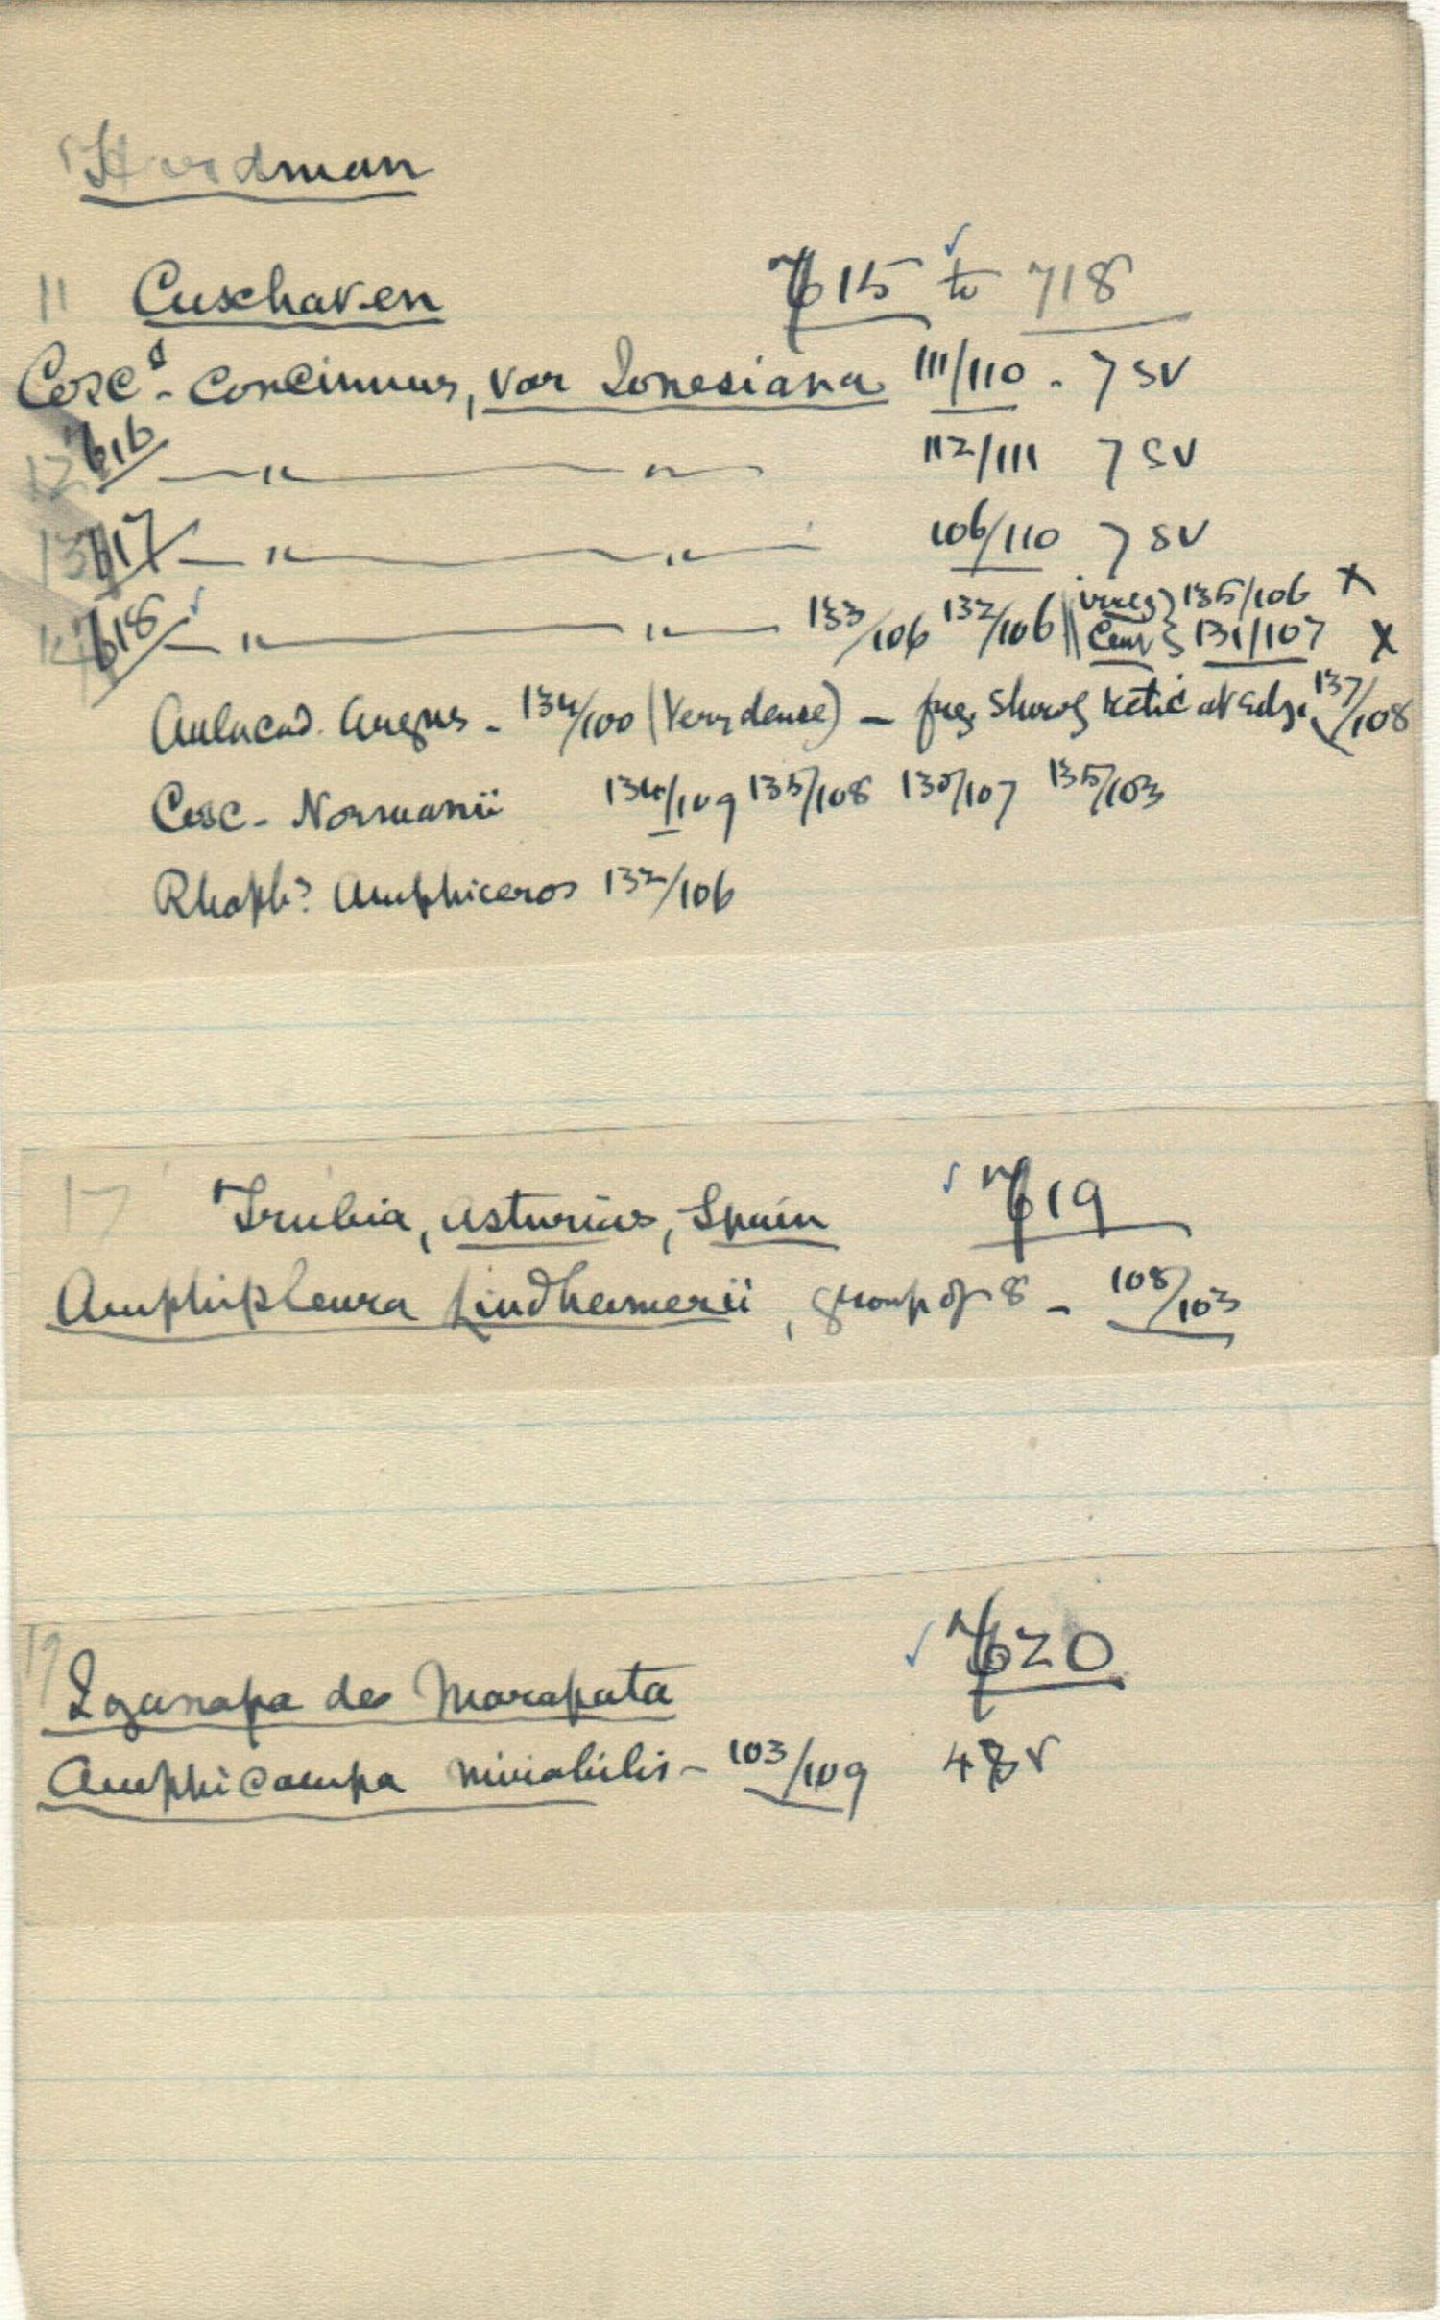 Hardman
11 Cuxhaven 715 to 718
Cosc^s - Concinnus, var Jonesiana 111/110 - 7 SV
12 716 — " — " — 112/111 7 SV
13 717 — " — " — 106/110 7 SV
14 718 — " — " — 133/106 132/106 || irreg } 135/106 X
Cent } 131/107 X
Aulacod. Argus - 134/100 (Very dense) - frag. showg retic at edge, 137/108
Cosc - Normanii 134/109 135/108 130/107 135/103
Rhaph^s Amphiceros 132/106
17 Trubia, Asturias, Spain 719
Amphipleura Lindheimerii, group of 8 - 108/103
19 720
Izanapa de Marapata
Amphicampa mirabilis - 103/109 4 SV